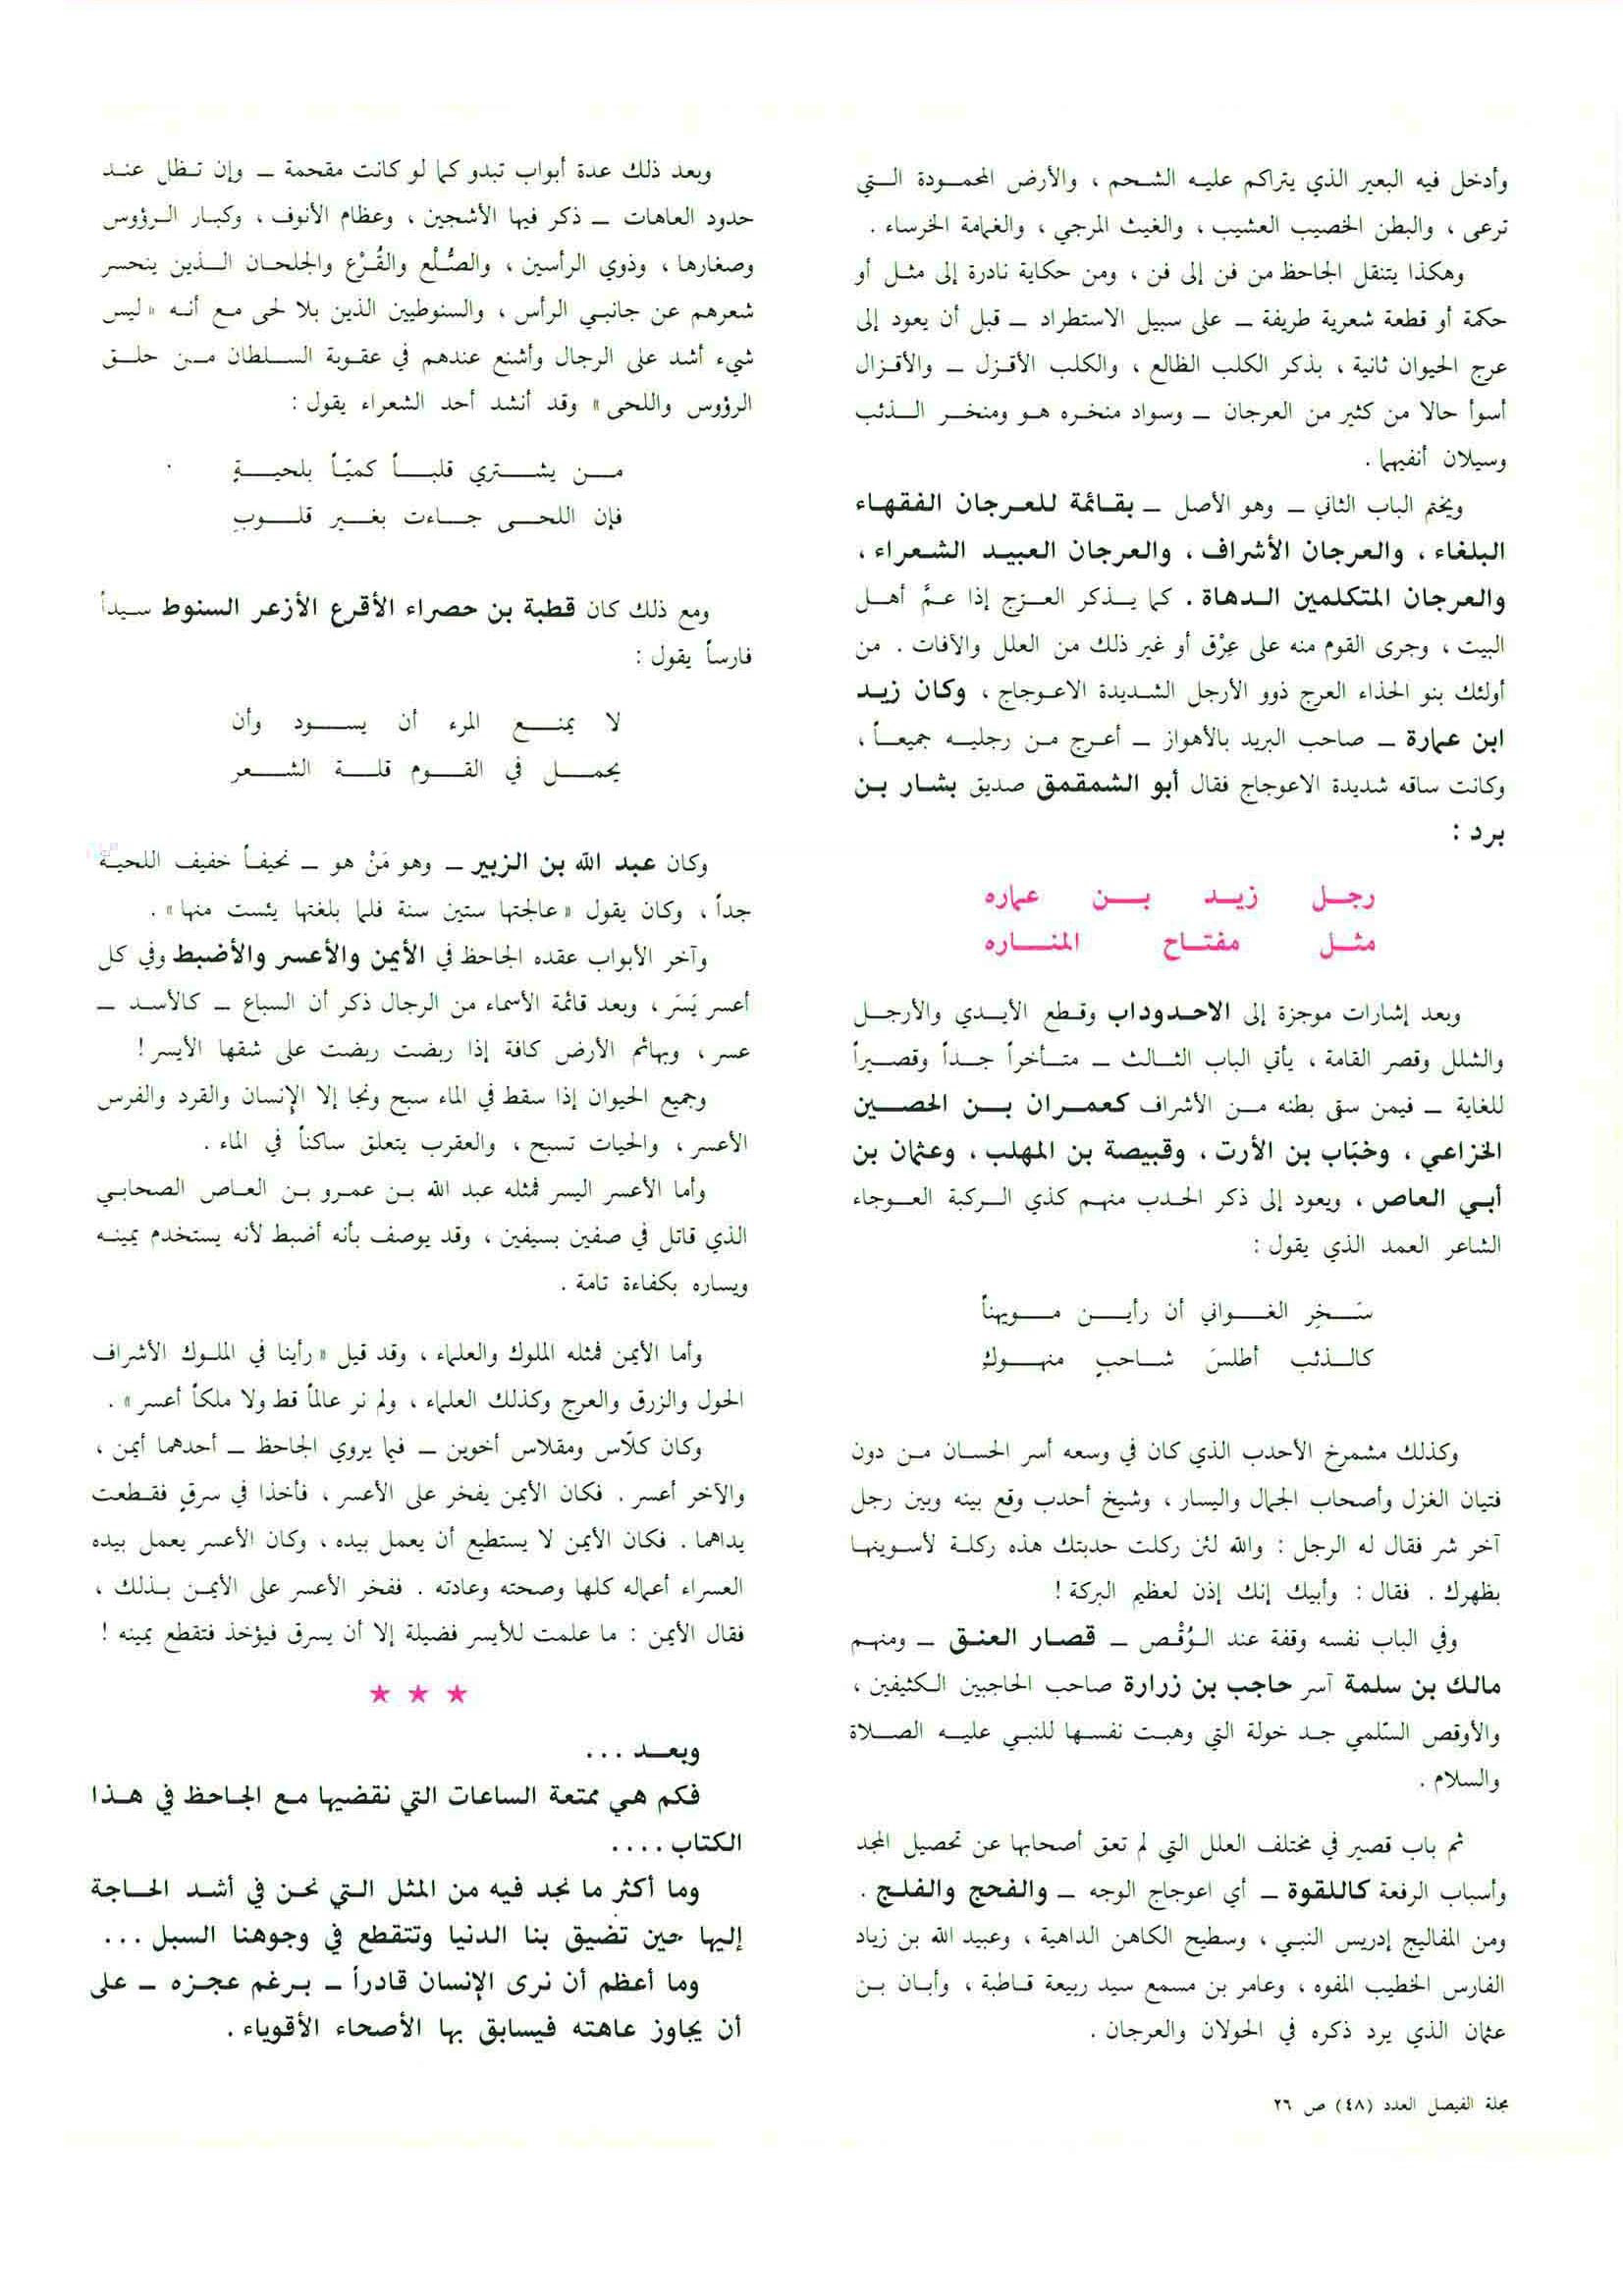 وأدخل فيه البعير الذي يتراكم عليه الشحم ، والأرض المحمودة التي
ترعى ، والبطن الخصيب العشيب ، والغيث المرجي ، والغمامة الخرساء .
وهكذا يتنقل الجاحظ من فن إلى فن ، ومن حكاية نادرة إلى مثل أو
حكمة أو قطعة شعرية طريفة – على سبيل الاستطراد – قبل أن يعود إلى
عرج الحيوان ثانية ، بذكر الكلب الظالع ، والكلب الأقزل – والأقزال
أسوأ حالا من كثير من العرجان – وسواد منخره هو ومنخر الذئب
وسيلان أنفيهما .
ويختم الباب الثاني – وهو الأصل – بقائمة للعرجان الفقهاء
البلغاء ، والعرجان الأشراف ، والعرجان العبيد الشعراء ،
والعرجان المتكلمين الدهاة . كما يذكر العرج إذا عمَّ أهل
البيت ، وجرى القوم منه على عِرْق أو غير ذلك من العلل والآفات . من
أولئك بنو الحذاء العرج ذوو الأرجل الشديدة الاعوجاج ، وكان زيد
ابن عمارة – صاحب البريد بالأهواز – أعرج من رجليه جميعاً ،
وكانت ساقه شديدة الاعوجاج فقال أبو الشمقمق صديق بشار بن
برد :
رجل زيد بن عماره
مثل مفتاح المناره
وبعد إشارات موجزة إلى الاحدوداب وقطع الأيدي والأرجل
والشلل وقصر القامة ، يأتي الباب الثالث – متأخراً جداً وقصيراً
للغاية – فيمن سقى بطنه من الأشراف كعمران بن الحصين
الخزاعي ، وخبّاب بن الأرت ، وقبيصة بن المهلب ، وعثمان بن
أبي العاص ، ويعود إلى ذكر الحدب منهم كذي الركبة العوجاء
الشاعر العمد الذي يقول :
سَخِر الغواني أن رأين مويهناً
كالذئب أطلسَ شاحبٍ منهوكِ
وكذلك مشمرخ الأحدب الذي كان في وسعه أسر الحسان من دون
فتيان الغزل وأصحاب الجمال واليسار ، وشيخ أحدب وقع بينه وبين رجل
آخر شر فقال له الرجل : والله لئن ركلت حدبتك هذه ركلة لأسوينها
بظهرك . فقال : وأبيك إنك إذن لعظيم البركة !
وفي الباب نفسه وقفة عند الوُقْص – قصار العنق – ومنهم
مالك بن سلمة آسر حاجب بن زرارة صاحب الحاجبين الكثيفين ،
والأوقص السّلمي جد خولة التي وهبت نفسها للنبي عليه الصلاة
والسلام .
ثم باب قصير في مختلف العلل التي لم تعق أصحابها عن تحصيل المجد
وأسباب الرفعة كاللقوة – أي اعوجاج الوجه – والفحج والفلج .
ومن المفاليج إدريس النبي ، وسطيح الكاهن الداهية ، وعبيد الله بن زياد
الفارس الخطيب المفوه ، وعامر بن مسمع سيد ربيعة قاطبة ، وأبان بن
عثمان الذي يرد ذكره في الحولان والعرجان .
مجلة الفيصل العدد (٤٨) ص ٢٦
وبعد ذلك عدة أبواب تبدو كما لو كانت مقحمة – وإن تظل عند
حدود العاهات – ذكر فيها الأشجين ، وعظام الأنوف ، وكبار الرؤوس
وصغارها ، وذوي الرأسين ، والصُّلْع والقُرْع والجلحان الذين ينحسر
شعرهم عن جانبي الرأس ، والسنوطيين الذين بلا لحى مع أنه « ليس
شيء أشد على الرجال وأشنع عندهم في عقوبة السلطان من حلق
الرؤوس واللحى » وقد أنشد أحد الشعراء يقول :
من يشتري قلباً كميّاً بلحيةٍ
فإن اللحى جاءت بغير قلوبِ
ومع ذلك كان قطبة بن حصراء الأقرع الأزعر السنوط سيداً
فارساً يقول :
لا يمنع المرء أن يسود وأن
يحمل في القوم قلة الشعر
وكان عبد الله بن الزبير – وهو مَنْ هو – نحيفاً خفيف اللحية
جداً ، وكان يقول « عالجتها ستين سنة فلما بلغتها يئست منها » .
وآخر الأبواب عقده الجاحظ في الأيمن والأعسر والأضبط وفي كل
أعسر يَسَر ، وبعد قائمة الأسماء من الرجال ذكر أن السباع – كالأسد –
عسر ، وبهائم الأرض كافة إذا ربضت ربضت على شقها الأيسر !
وجميع الحيوان إذا سقط في الماء سبح ونجا إلا الإنسان والقرد والفرس
الأعسر ، والحيات تسبح ، والعقرب يتعلق ساكناً في الماء .
وأما الأعسر اليسر فمثله عبد الله بن عمرو بن العاص الصحابي
الذي قاتل في صفين بسيفين ، وقد يوصف بأنه أضبط لأنه يستخدم يمينه
ويساره بكفاءة تامة .
وأما الأيمن فمثله الملوك والعلماء ، وقد قيل « رأينا في الملوك الأشراف
الحول والزرق والعرج وكذلك العلماء ، ولم نر عالماً قط ولا ملكاً أعسر » .
وكان كلّاس ومقلاس أخوين – فيما يروي الجاحظ – أحدهما أيمن ،
والآخر أعسر . فكان الأيمن يفخر على الأعسر ، فأخذا في سرقٍ فقطعت
يداهما . فكان الأيمن لا يستطيع أن يعمل بيده ، وكان الأعسر يعمل بيده
العسراء أعماله كلها وصحته وعادته . ففخر الأعسر على الأيمن بذلك ،
فقال الأيمن : ما علمت للأيسر فضيلة إلا أن يسرق فيؤخذ فتقطع يمينه !
★ ★ ★
وبعد ...
فكم هي ممتعة الساعات التي نقضيها مع الجاحظ في هذا
الكتاب ....
وما أكثر ما نجد فيه من المثل التي نحن في أشد الحاجة
إليها حين تضيق بنا الدنيا وتتقطع في وجوهنا السبل ...
وما أعظم أن نرى الإنسان قادراً – برغم عجزه – على
أن يجاوز عاهته فيسابق بها الأصحاء الأقوياء .